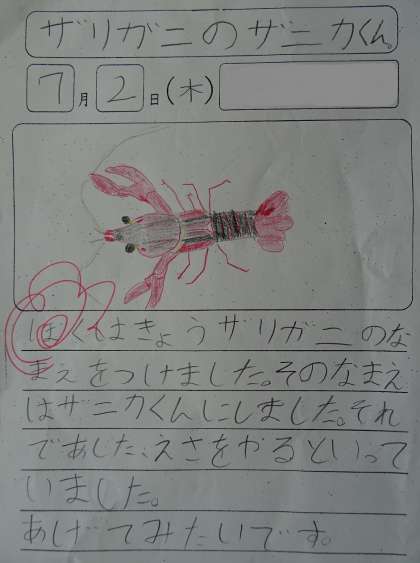 ザリガニのザニカくん。
7月2日(木)
ぼくはきょうザリガニのな
まえをつけました。そのなまえ
はザニカくんにしました。それ
であした、えさをやるといって
いました。
あげてみたいです。